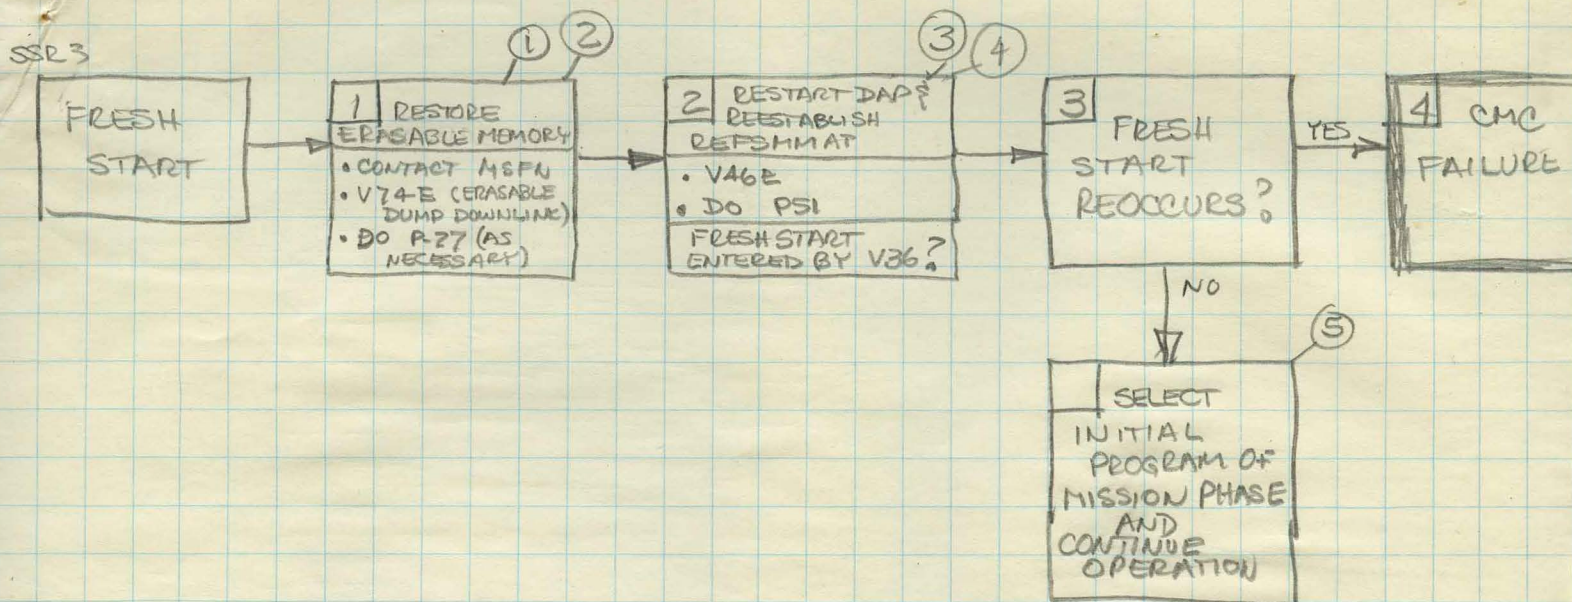 SSR3
FRESH
START
1 2
1 RESTORE
ERASABLE MEMORY
• CONTACT MSFN
• V74E (ERASABLE
DUMP DOWNLINK)
• DO P-27 (AS
NECESSARY)
3 4
2 RESTART DAP &
REESTABLISH
REFSMMAT
• V46E
• DO P51
FRESH START
ENTERED BY V36?
3
FRESH
START
REOCCURS?
YES
4 CMC
FAILURE
NO
5
SELECT
INITIAL
PROGRAM OF
MISSION PHASE
AND
CONTINUE
OPERATION